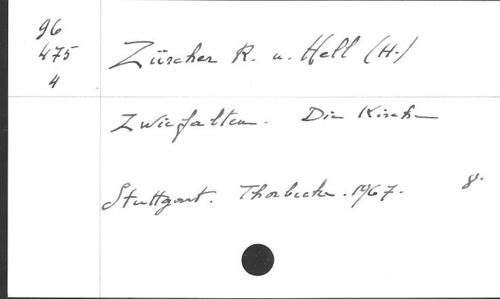 96
475
4
Zürcher R. u. Hell (H.)
Zwiefalten. Die Kirche
Stuttgart. Thorbecke. 1967. 8.